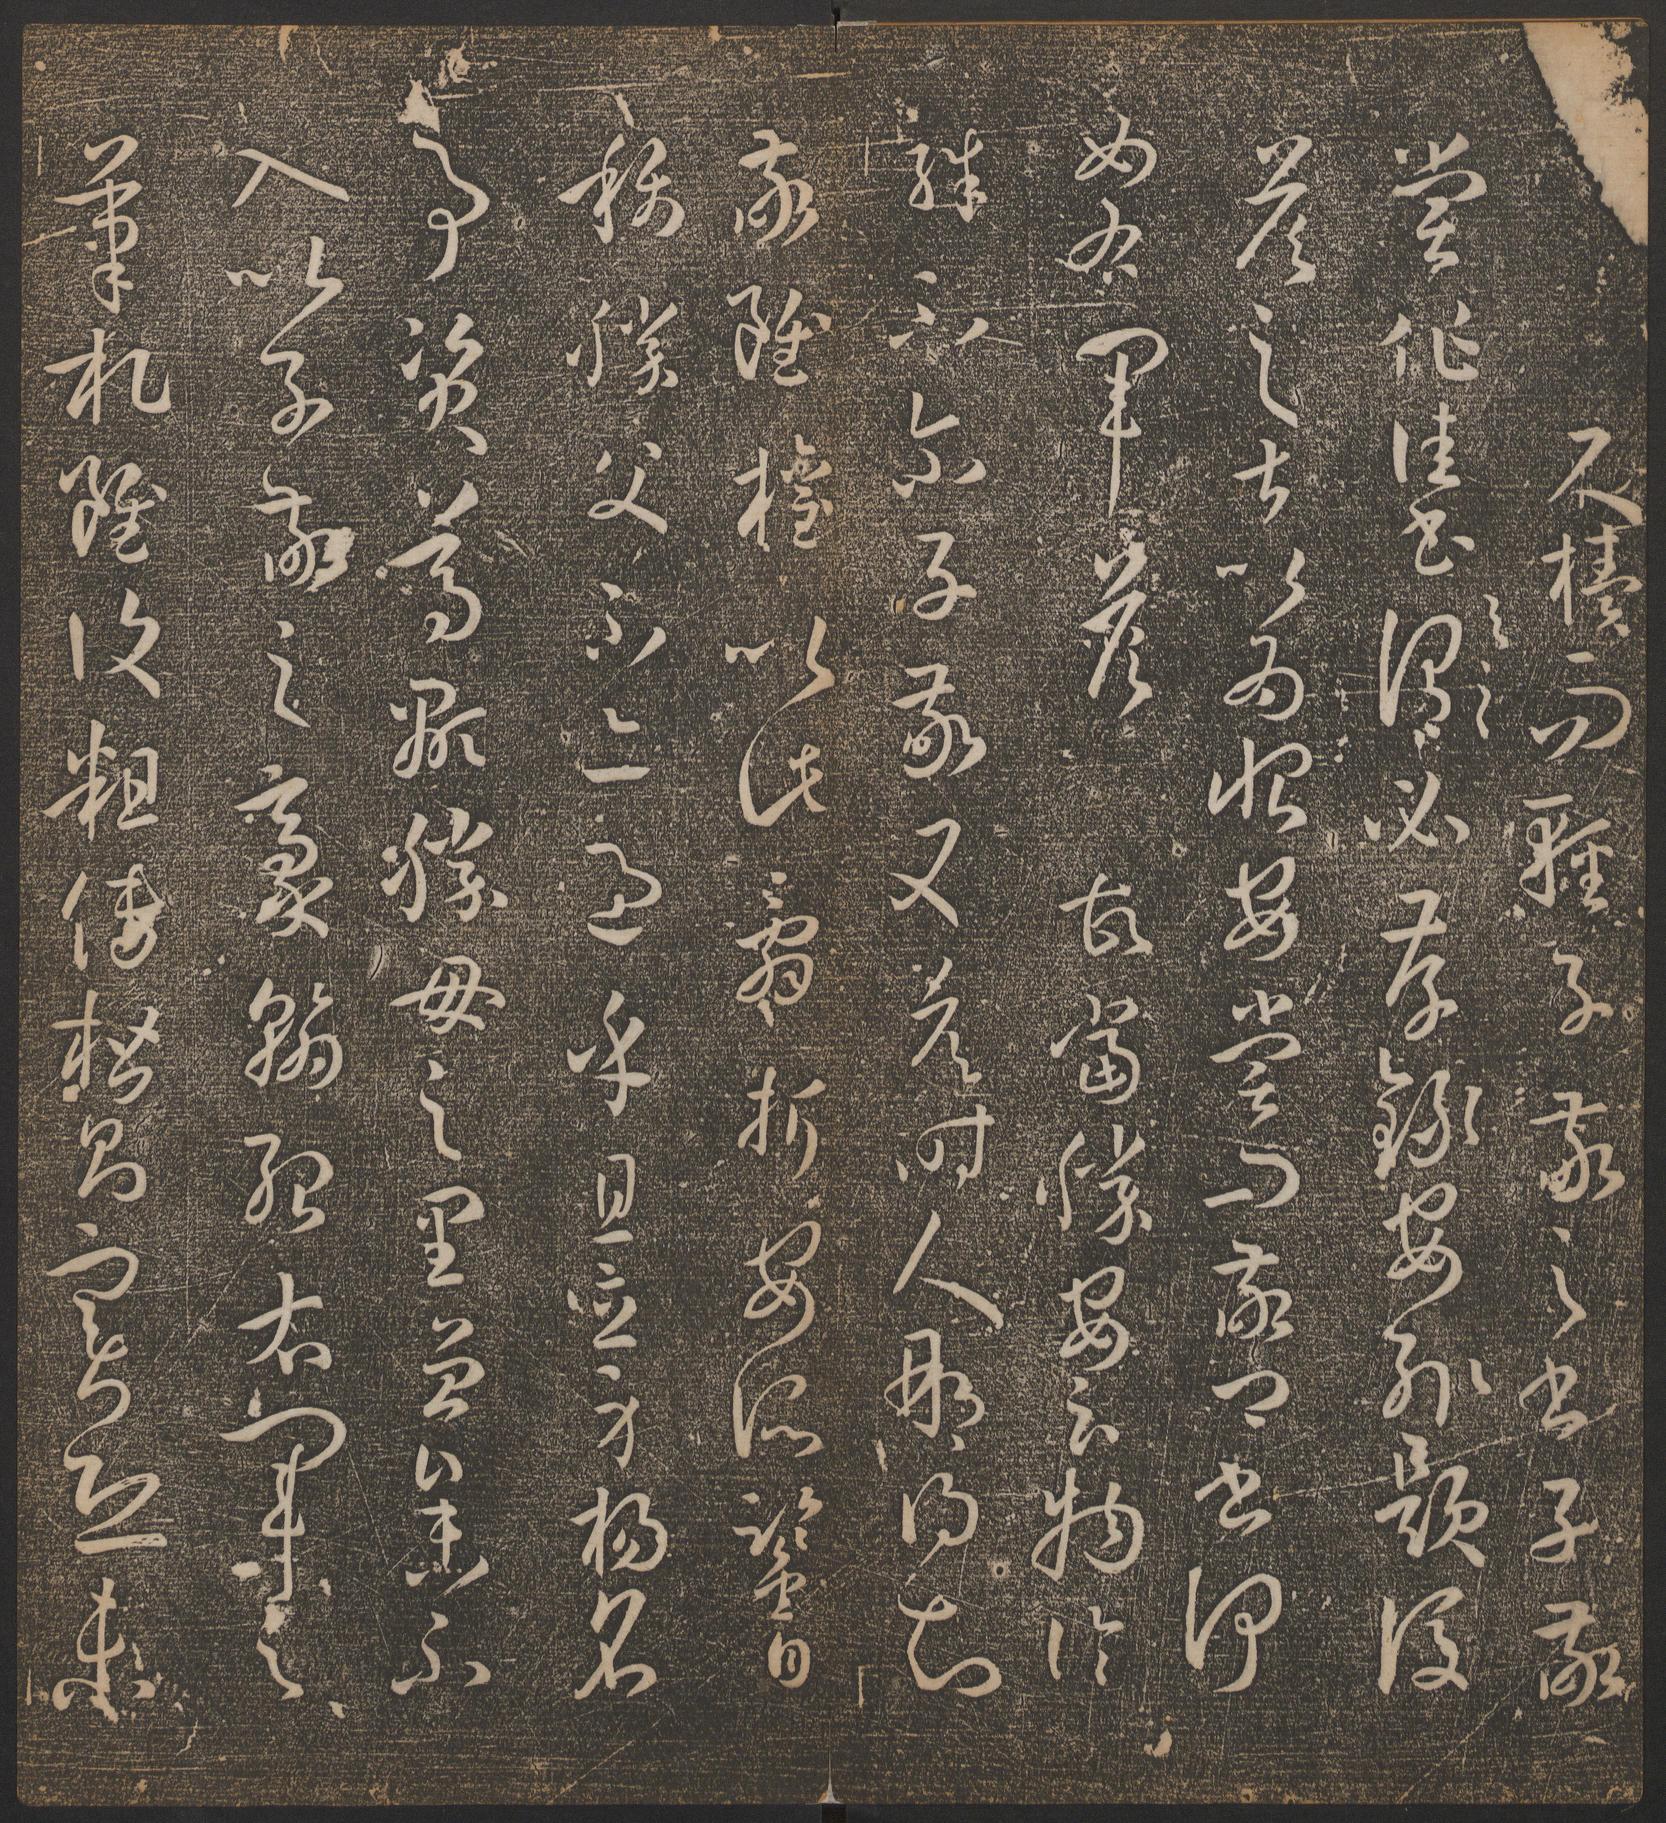 尺牘而輕子敬之書子敬
嘗作佳書與之謂必存錄安輒題後
答之甚以為恨安嘗問敬卿書何
如右軍答故當勝安云物論
殊不爾子敬又答時人那得知
敬雖權以此辭折安所鑒自
稱勝父不亦過乎且立身揚名
事資尊顯勝母之里曾參不
入以子敬之豪翰紹右軍之
筆札雖復粗傳楷則實恐未